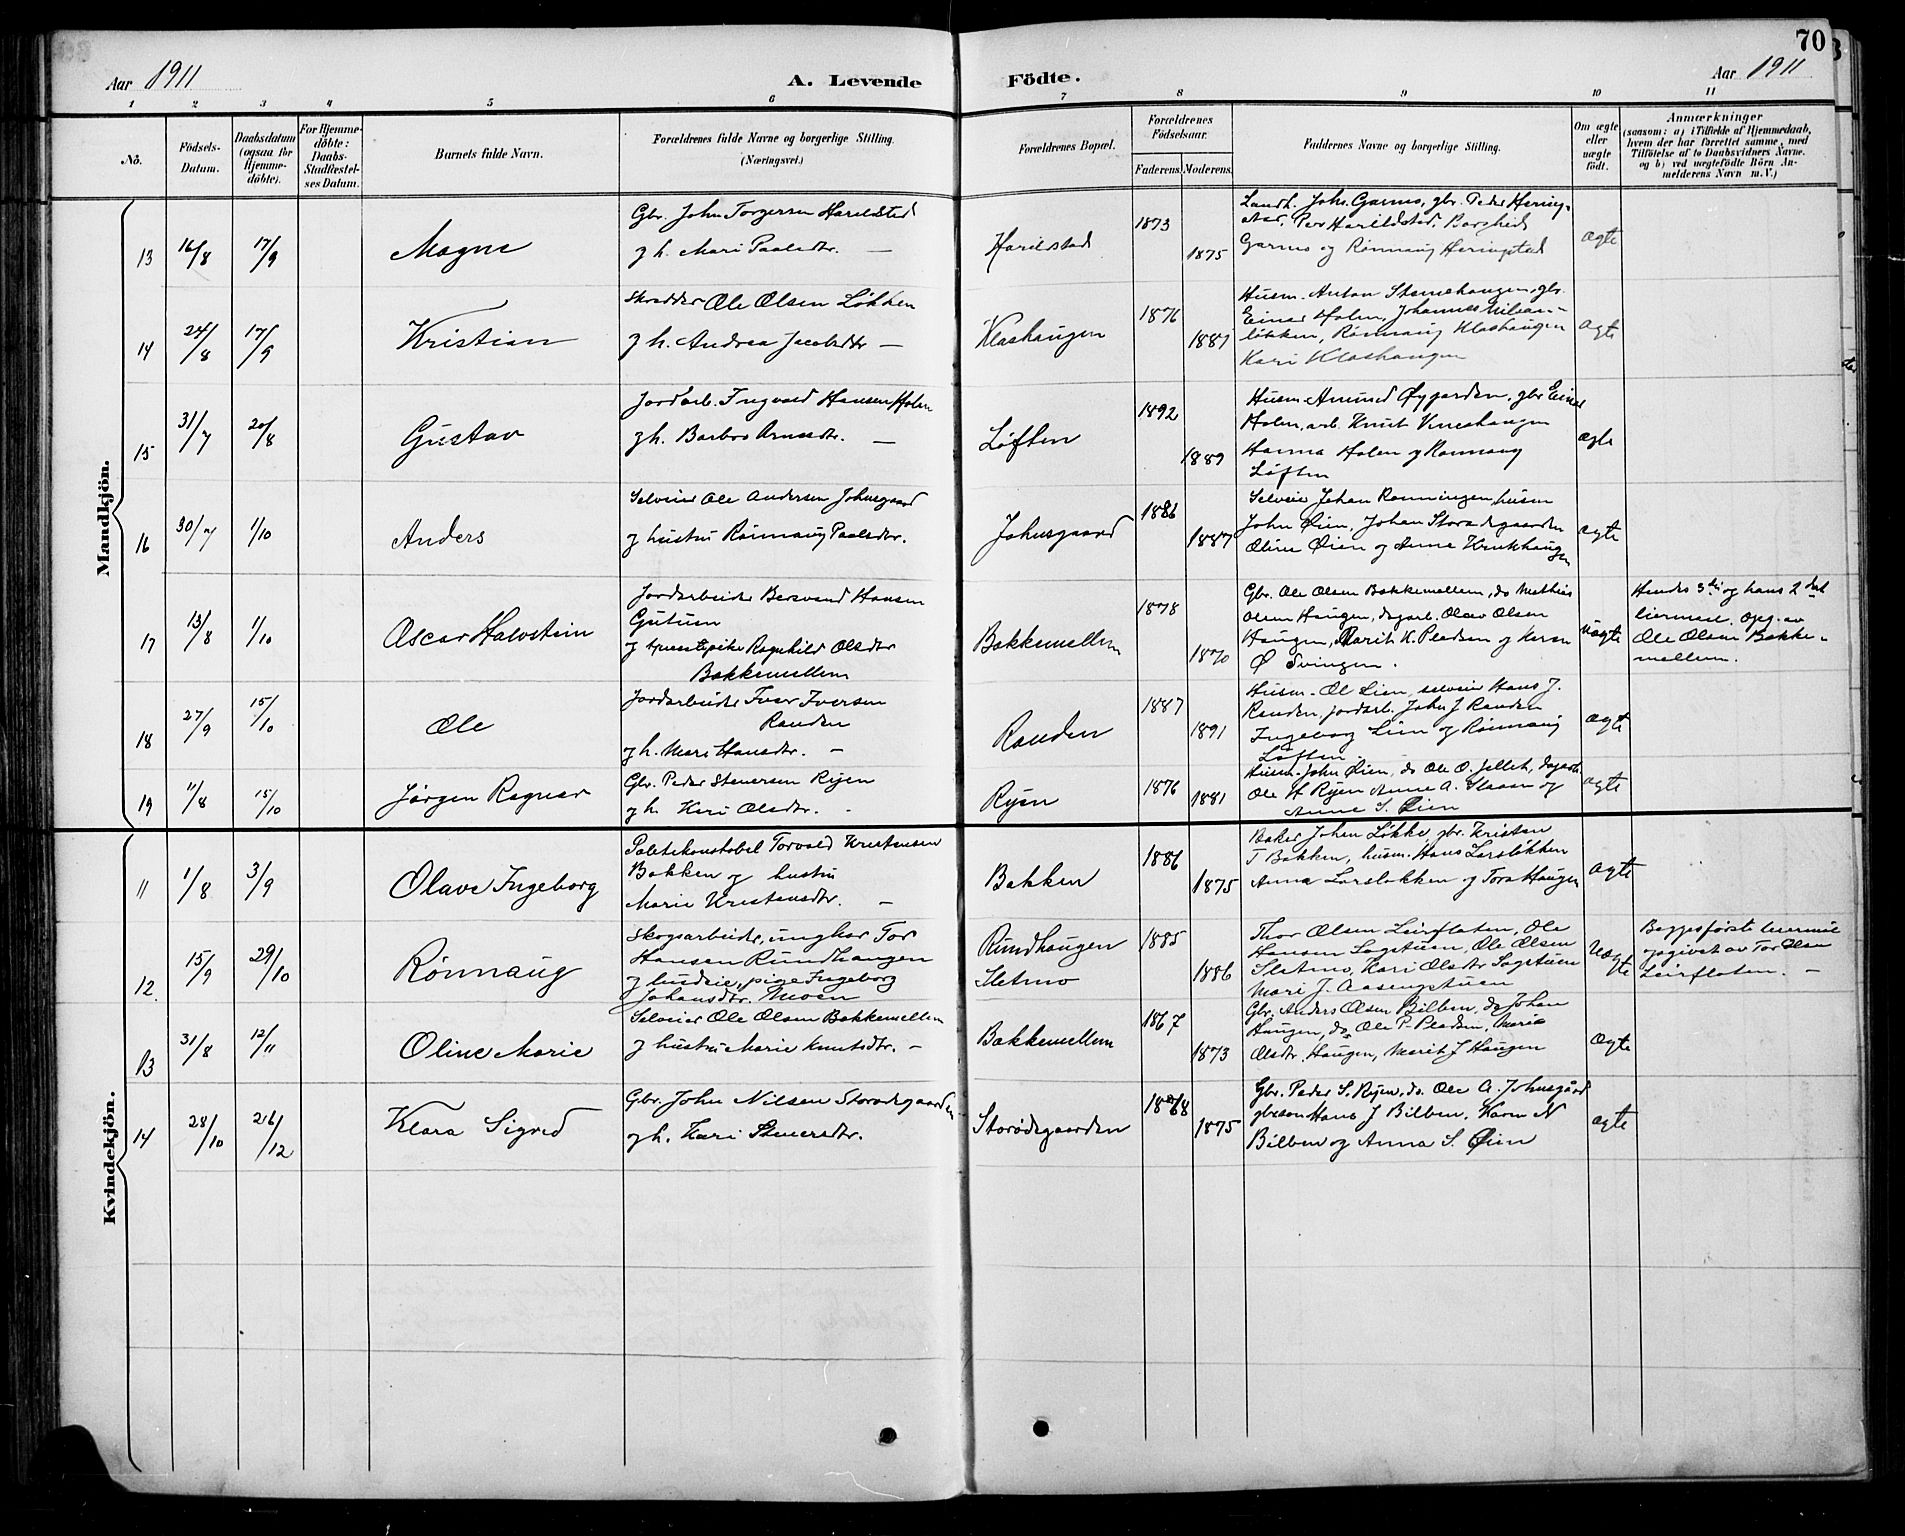 70
Aar 1911
A. Levende
Födte.
Aar 1911
1 2 3 4 5 6 7 8 9 10 11
No.
Födsels-
Datum.
Daabsdatum
(ogsaa for
Hjemme-
döbte).
For Hjemme-
döbte:
Daabs-
Stadfæstel-
ses Datum.
Barnets fulde Navn.
Forældrenes fulde Navne og borgerlige Stilling.
(Næringsvei.)
Forældrenes Bopæl.
Forældrenes
Födselsaar.
Faderens.
Moderens.
Faddernes Navne og borgerlige Stilling.
Om ægte
eller
uægte
født.
Anmærkninger
(saasom: a) i Tilfælde af Hjemmedaab,
hvem der har forrettet samme, med
Tilföielse af to Daabsvidners Navne.
og b) ved uægtefödte Börn An-
melderens Navn m.V.)
Mandkjön.
13
16/8
17/9
Magne
Gbr. John Torgersen Harildstad
g h. Mari Paalsdtr. —
Harildstad
1873
1875
Landh. Johs. Garmo, gbr. Peder Hering-
stad, Per Harildstad, Borghild
Garmo og Rønnaug Heringstad
ægte
14
24/8
17/9
Kristian
Skredder Ole Olsen Løkken
g h. Andrea Jacobsdtr —
Klashaugen
1876
1881
Husm. Anton Stenehaugen, gbr.
Einar Holen, Johannes
løkken, Rønnaug Klashaugen
Kari Klashaugen
ægte
15
31/7
20/8
Gustav
Jordarb. Ingvald Hansen Holen
g h. Barbro Arnesdtr. —
Løften
1892
1889
Husm. Amund Øygarden, gbr Einar
Holen, arb. Knut Vineshaugen
Hanna Holen og Rønnaug
Løften
ægte
16
30/7
1/10
Anders
Selveier Ole Andersen Johnsgaard
og hustru Rønnaug Paalsdtr.
Johnsgaard
1886
1887
Selveier Johan Rønningen, husm
John Øien, Johan Storødegaarden
Oline Øien og Anne Krukhaugen
ægte
17
13/8
1/10
Oscar Halvstein
Jordarbeider Bersvend Hansen
Gutuen
og pike Ragnhild Olsdtr
Bakkemellem
Bakkemellem
1878
1870
Gbr. Ole Olsen Bakkemellem, do Mathias
Olsen Haugen, dagarb. Olav Olsen
Haugen, Marit K. Pladsen og Karen
Ø Svingen.
uægte
Hendes 3die og hans 2det
leiermaal. Opg. av
Ole Olsen Bakke-
mellem.
18
27/9
15/10
Ole
Jordarbeider Iver Iversen
Randen
g h. Mari Hansdtr. —
Randen
1887
1891
Husm. Ol Lien, selveier Hans J.
Randen, jordarb. John J Randen
Ingeborg Lien og Rønnaug
Løften
ægte
19
11/8
15/10
Jørgen Ragnar
Gbr. Peder Stenersen Ryen
g h. Kari Olsdtr. -
Ryen
1876
1881
Husm. John Øien, do Ole O. Jellet, dagarb.
Ole H Ryen Anne A. Slaaen og
Anne S. Øien
ægte
Kvindekjön.
11
1/8
3/9
Olave Ingeborg
Politikonstabel Torvald Kristensen
Bakken og hustru
Marie Kristensdtr. —
Bakken
1886
1875
Baker Johan Løkke, gbr. Kristen
T Bakken, husm. Hans Larsløkken
Anna Larsløkken og Tora Haugen
ægte
12
15/9
29/10
Rønnaug
Skogsarbeider, ungkar Tor
Hansen Rundhaugen
og budeie, pige Ingeborg
Johansdtr. Moen
Rundhaugen
Sletmo
1885
1886
Thor Olsen Leirflaten, Ole
Hansen Sagstuen, Ole Olsen
Sletmo, Kari Olsdtr Sagstuen
Mari J. Aasengstuen
Uægte
Begges første leiermaal
opgivet av Tor Olsen
Leirflaten. —
13
31/8
12/11
Oline Marie
Selveier Ole Olsen Bakkemellem
g hustru Marie Knutsdtr. —
Bakkemellem
1867
1873
Gbr. Anders Olsen Bilben, do Johan
Haugen, do Ole P. Pladsen, Marie
Olsdtr. Haugen, Marit J Haugen
Ægte
14
28/10
26/12
Klara Sigrid
Gbr. John Nilsen Storødegaarden
g h. Kari Stenersdtr.
Storødegaarden
1868
1875
Gbr. Peder S. Ryen, do. Ole A. Johnsgård
gbrsøn Hans J Bilben, Karen N
Bilben og Anna S. Øien
ægte